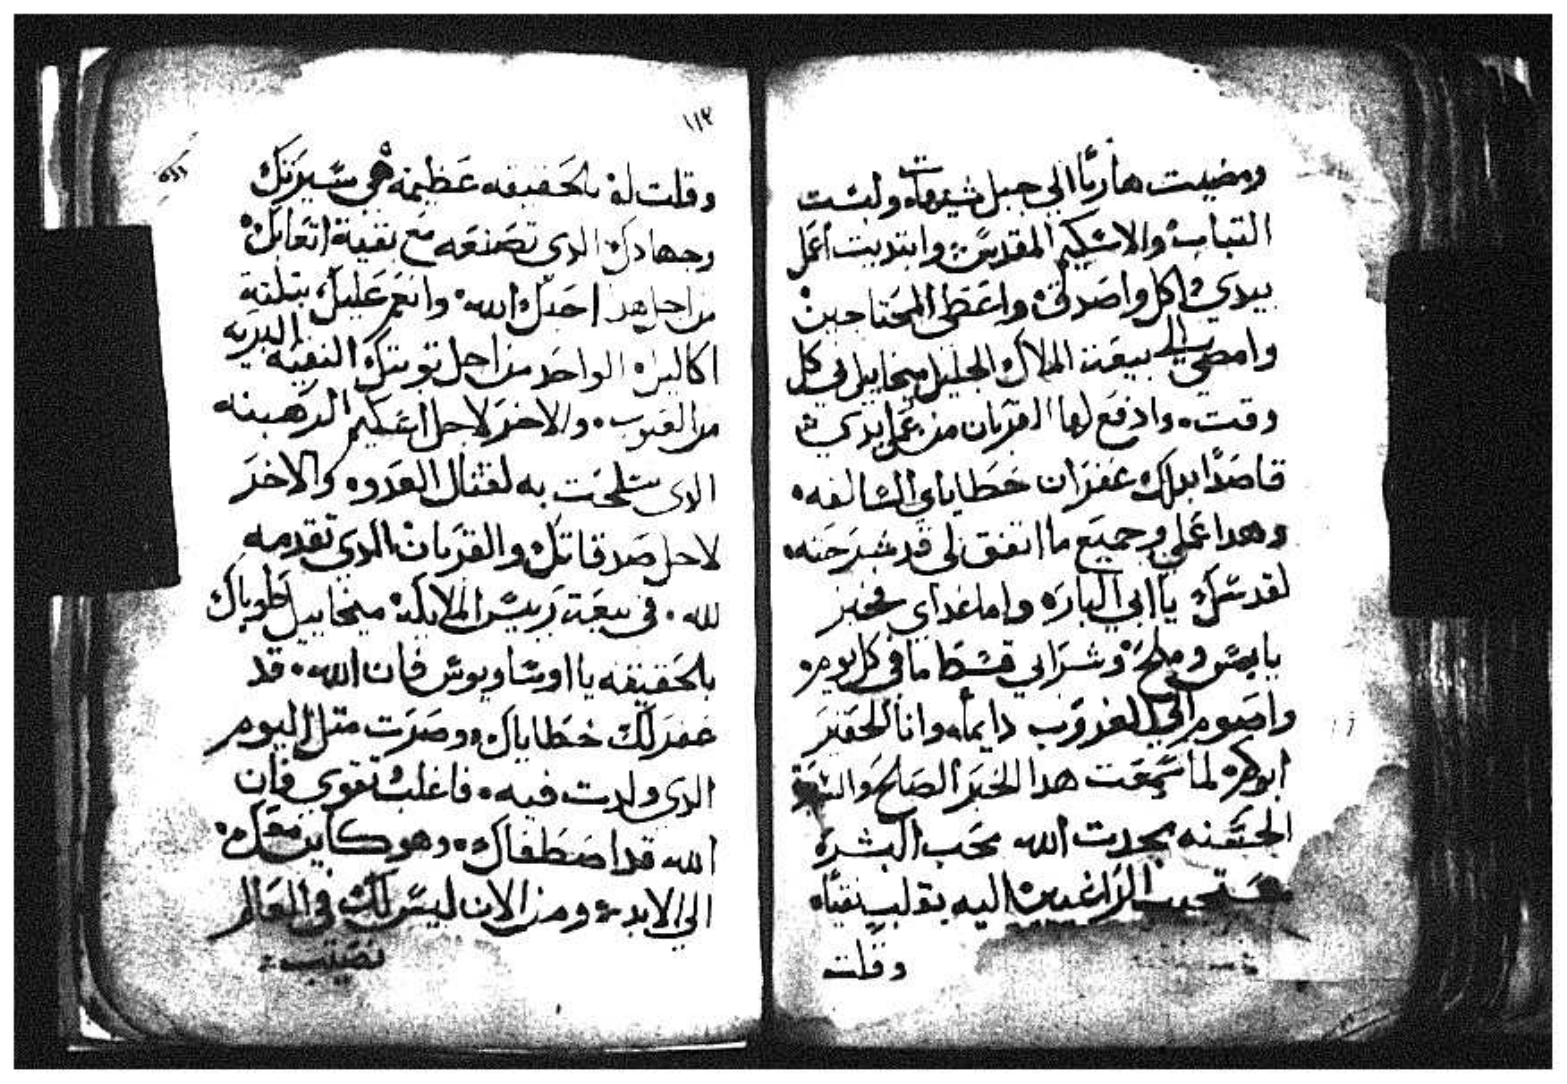 ومضيت هاربًا الي جبل شيهات ولبست
التياب والاسكيم المقدس وابتديت اعمل
بيدي اكل واصدق واعطي المحتاجين
وامضي الي بيعة الملاك الجليل ميخاييل في كل
وقت. وادفع لها القربان من عمل يدي
قاصدًا بدلك غفران خطاياي السالفه.
وهدا عملي وجميع ما اتفق لي قد شرحته.
لقدسك يا ابي الباره واما غداي فخبز
يابس وملح وشرابي قسط ما في كل يوم.
واصوم الي الغروب دايمًا. وانا الحقير
ابوكير لما سمعت هدا الخبر الصالح
الحسنه مجدت الله محب البشره
الراغبين اليه بقلب نقيًا.
وقلت
١١٣
وقلت له بالحقيقه عظيمه هي سيرتك
وجهادك الدي تصنعه مع بقية اتعابك
من اجل هدا احبك الله. وانعم عليك بتلتة
اكاليل الواحد من اجل توبتك النقيه البريه
من العيوب. والاخر لاجل اسكيم الرهبنه
الدي تسلحت به لقتال العدو. والاخر
لاجل صدقاتك والقربان الدي تقدمه
لله. في بيعة رييس الملايكة ميخاييل طوباك
بالحقيقه يا اوساويوس فان الله. قد
غفر لك خطاياك. وصرت متل اليوم
الدي ولدت فيه. فاغلب تقوي فان
الله قد اصطفاك. وهو كاين معك.
الي الابد. ومن الان ليس لك في العالم
نصيب